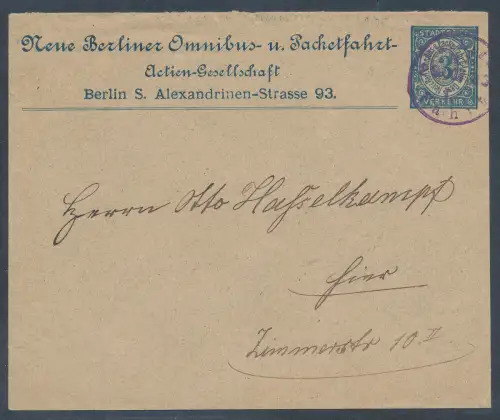 Neue Berliner Omnibus- u. Packetfahrt-
Actien-Gesellschaft
Berlin S. Alexandrinen-Strasse 93.
3
VERKEHR
Herrn Otto Hasselkampf
hier
Zimmerstr 10 II